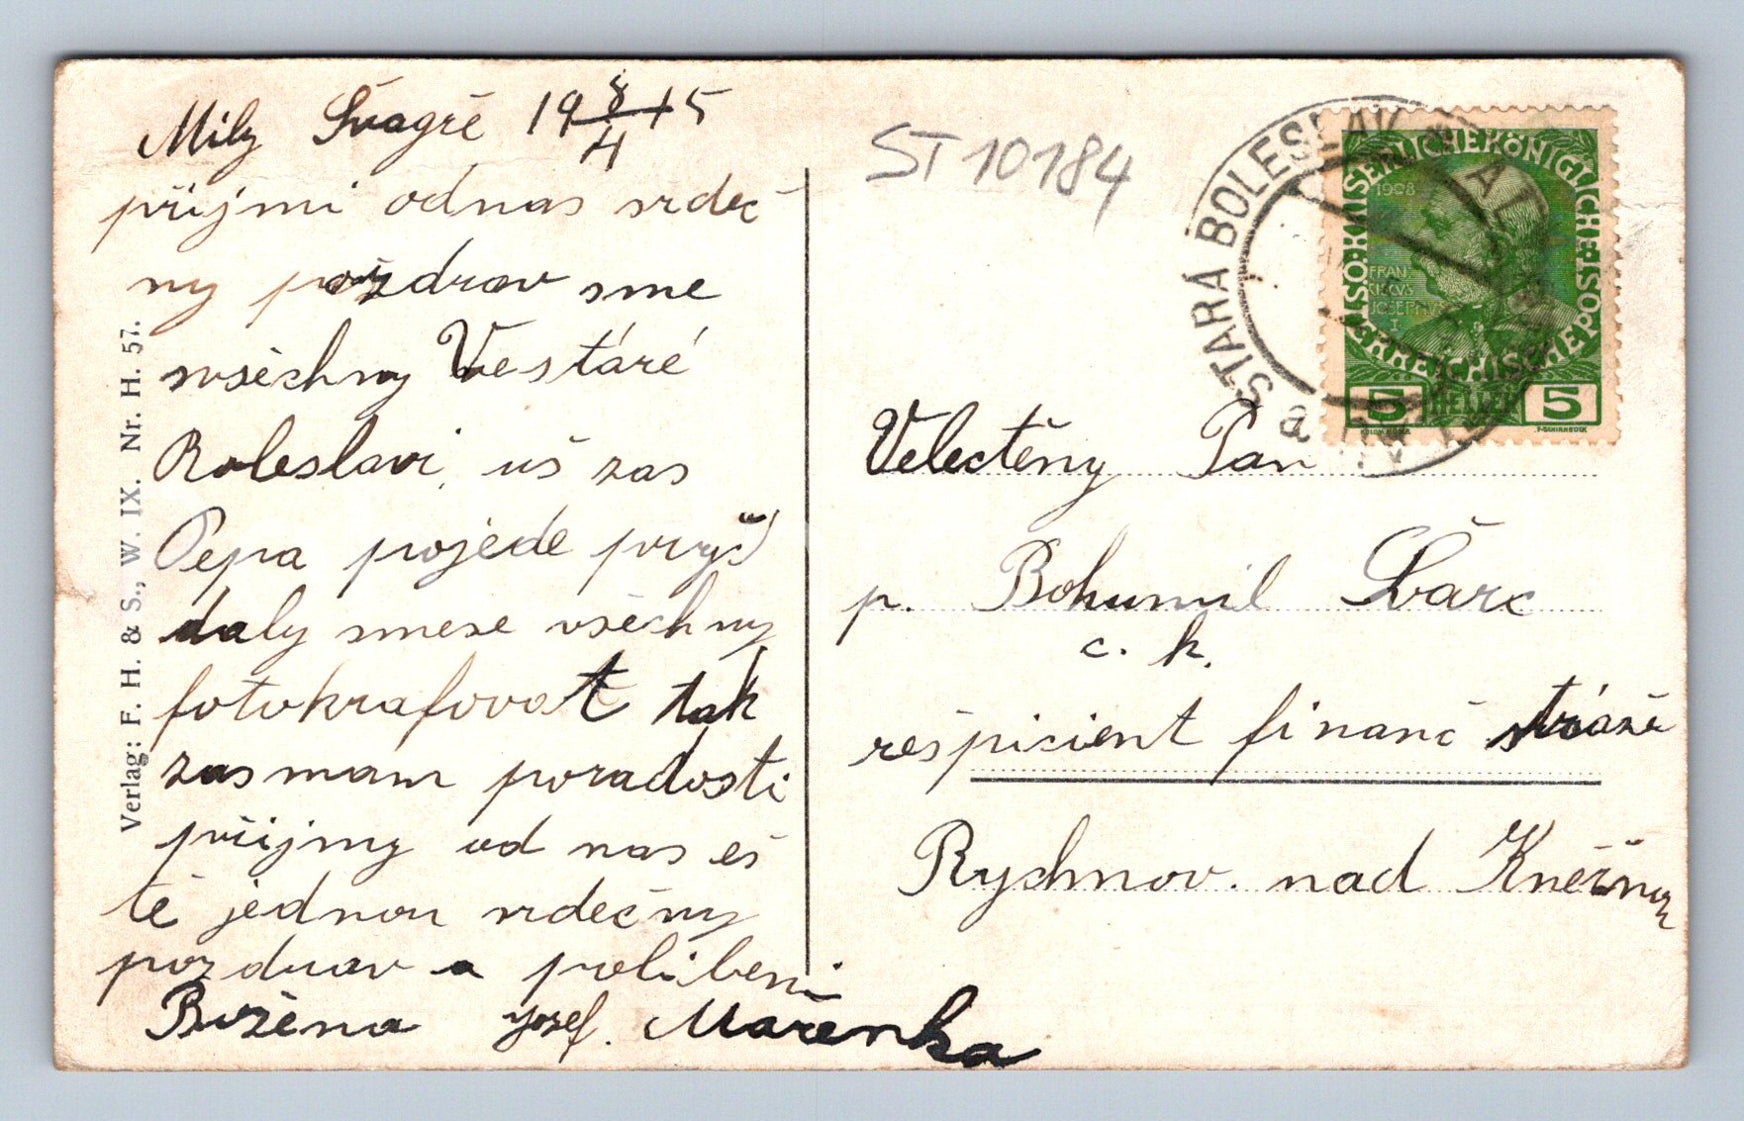 Milý Švagře 19 8/4 15
přijmi odnas srdeč
ny pozdrav sme
wšěchny Vestáré
Boleslavi, uš zas
Pepa pojede pryč
daly smese všěchny
fotokrafovat tak
zas mam poradosti
přijmy od nas eš
tě jednou srdečny
pozdrav a polibeni
Božena Josef. Mařenka
Verlag: F. H. & S., W. IX. Nr. H. 57.
ST 10184
STARÁ BOLESLAV
a
KAISERLICHE KÖNIGLICHE ÖSTERREICHISCHE POST
1908
FRAN
CISCVS
JOSEPHVS
I
5 HELLER 5
Velectěny Pan
p. Bohumil Švárc
c. k.
rešpicient finanč stráže
Rychnov. nad Kněžnou